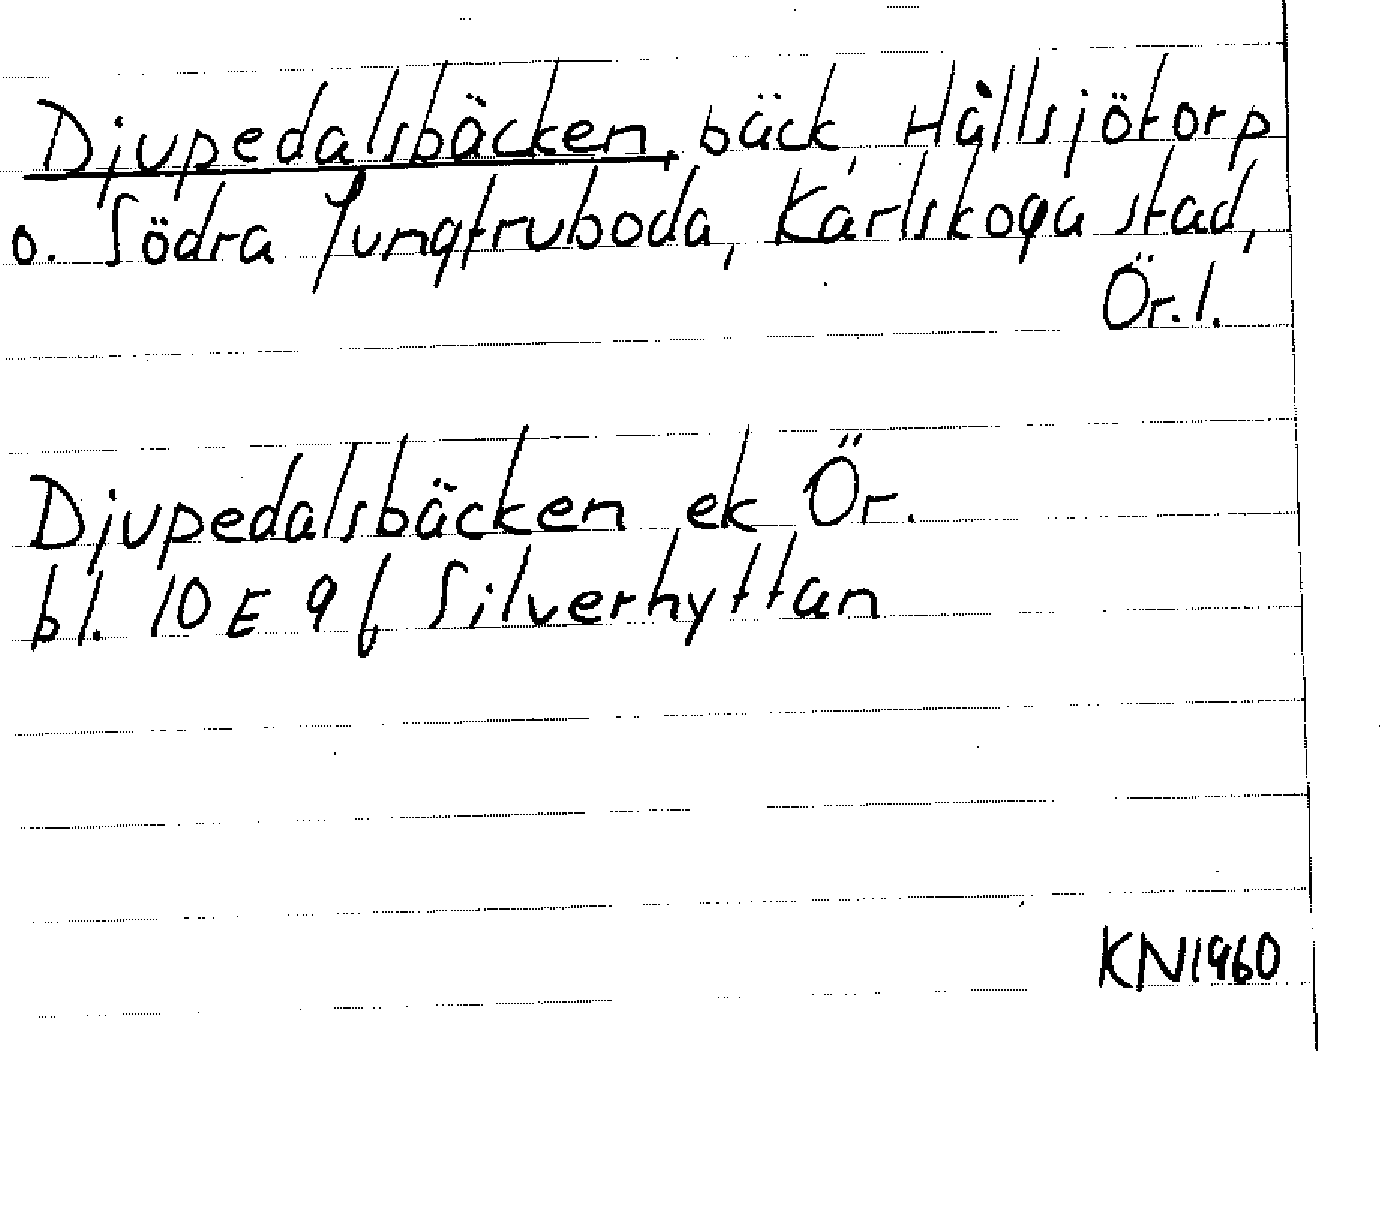 Djupedalsbäcken, bäck, Hållsjötorp
o. Södra Jungfruboda, Karlskoga stad,
Ör. l.
Djupedalsbäcken ek Ör.
bl. 10 E 9 f Silverhyttan
KN1960